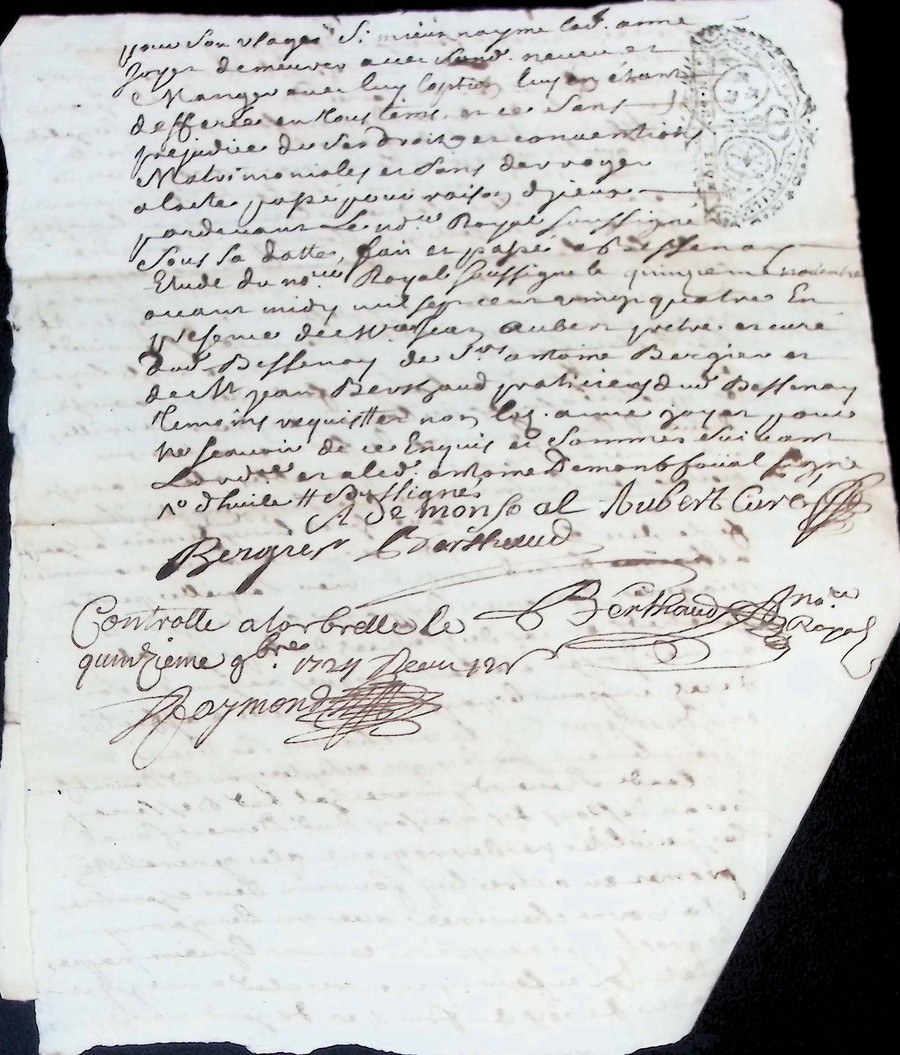 pour son usage si mieux n'ayme lad. anne
Joyet demeurer avec sond. neveu et
Manger avec luy loption luy en étant
defferée en tous tems et ce sans
prejudice de ses droits et conventions
Matrimoniales et sans deroger
a lacte passé pour raison d'jceux
pardevant le no.re Royal soussigné
sous sa datte, fait et passé a Bessenay
Etude du no.re Royal soussigné le quinzieme novembre
avant midy mil sept cent vingt quatre En
presence de M.re Jean Aubert pretre et curé
dud. Bessenay de S.r antoine Bergier et
de M.e Jean Berthaud praticien dud. Bessenay
temoins requis et non lad. anne Joyet pour
ne scavoir de ce Enquis et Sommés suivant
Lord.ce et a led. antoine Demontfoual signé
Soussignes
A De monfoal Aubert Curé
Bergier Berthaud
Controllé a larbrelle le Berthaud no.re Royal
quinzieme 9bre. 1724 Receu
Raymond